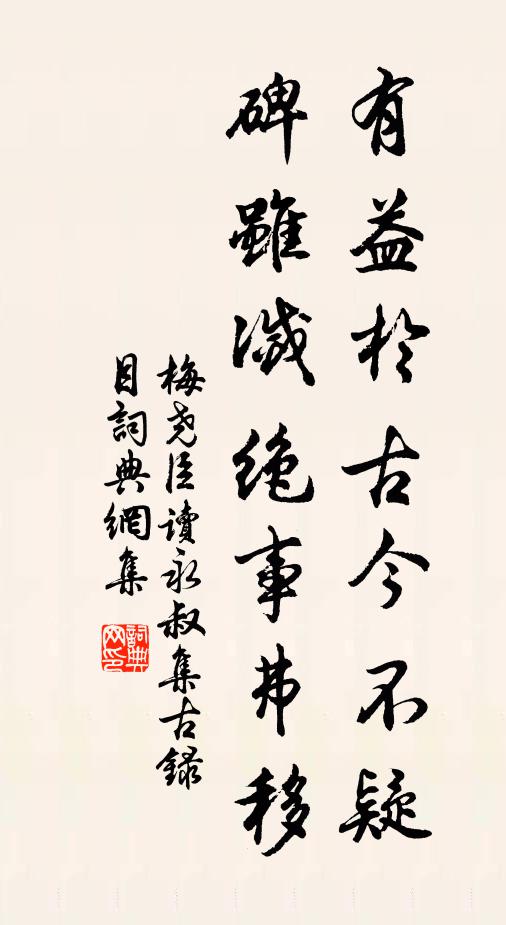 有益於古今不疑
碑雖滅絕事弗移
梅堯臣讀永叔集古錄
目詞典網集
詞典
网印